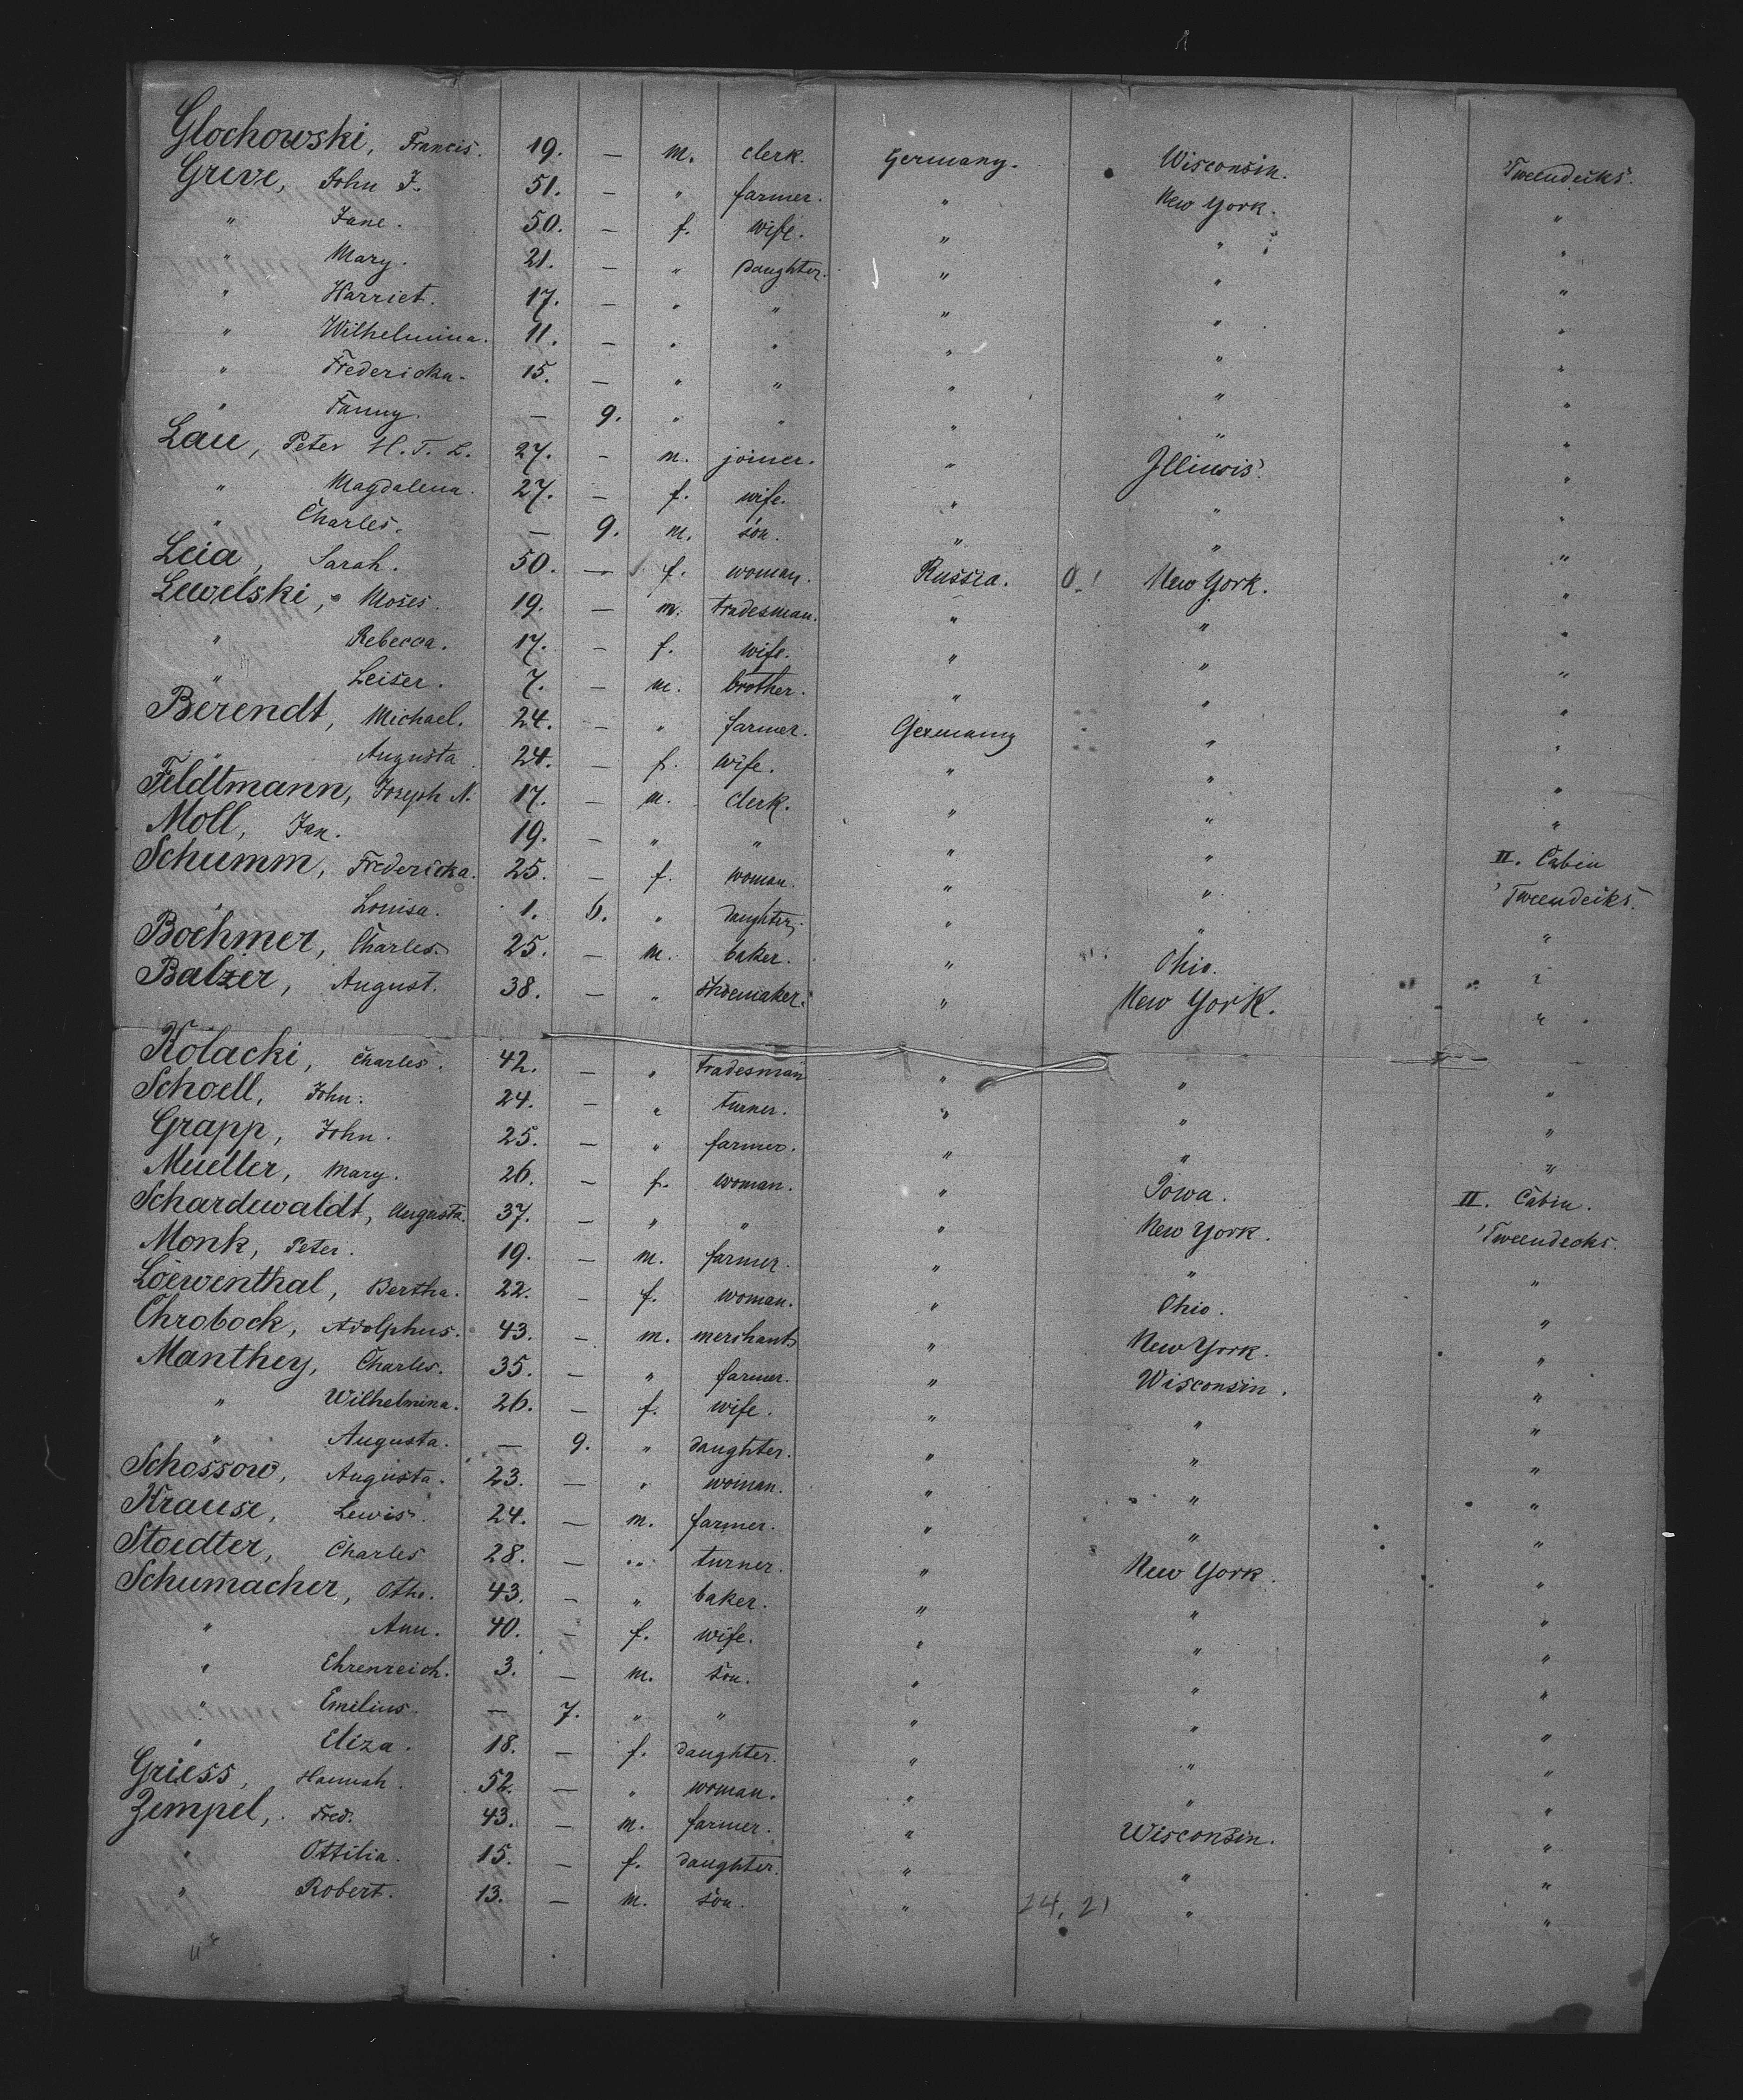 Glochowski, Francis. 19. — m. clerk. Germany. Wisconsin. 'Tweendecks.
Greve, John J. 51. — " farmer. " New York. "
" Jane. 50. — f. wife. " " "
" Mary. 21. — " daughter. " " "
" Harriet. 17. — " " " " "
" Wilhelmina. 11. — " " " " "
" Fredericka. 15. — " " " " "
" Fanny. — 9. " " " " "
Lau, Peter H. T. L. 27. — m. joiner. " Illinois. "
" Magdalena. 27. — f. wife. " " "
" Charles. — 9. m. son. " " "
Leia, Sarah. 50. — f. woman. Russia. New York. "
Lewelski, Moses. 19. — m. tradesman. " " "
" Rebecca. 17. — f. wife. " " "
" Leiser. 7. — m. brother. " " "
Berendt, Michael. 24. — " farmer. Germany " "
" Augusta. 24. — f. wife. " " "
Feldtmann, Joseph N. 17. — m. clerk. " " "
Moll, Jan. 19. — " " " " II. Cabin
Schumm, Fredericka. 25. — f. woman. " " 'Tweendecks.
" Louisa. 1. 6. " daughter. " " "
Boehmer, Charles. 25. — m. baker. " Ohio. "
Balzer, August. 38. — " shoemaker. " New York. "
Kolacki, Charles. 42. — " tradesman " " "
Schoell, John. 24. — " turner. " " "
Grapp, John. 25. — " farmer. " " "
Mueller, Mary. 26. — f. woman. " Iowa. II. Cabin.
Schardewaldt, Augusta. 37. — " " " New York. 'Tweendecks.
Monk, Peter. 19. — m. farmer. " " "
Loewenthal, Bertha. 22. — f. woman. " Ohio. "
Chrobock, Adolphus. 43. — m. merchant. " New York. "
Manthey, Charles. 35. — " farmer. " Wisconsin. "
" Wilhelmina. 26. — f. wife. " " "
" Augusta. — 9. " daughter. " " "
Schossow, Augusta. 23. — " woman. " " "
Krause, Lewis. 24. — m. farmer. " " "
Stoedter, Charles 28. — " turner. " New York. "
Schumacher, Otho. 43. — " baker. " " "
" Ann. 40. — f. wife. " " "
" Ehrenreich. 3. — m. son. " " "
" Emilius. — 7. " " " " "
" Eliza. 18. — f. daughter. " " "
Griess, Hannah. 52. — " woman. " " "
Zempel, Fred. 43. — m. farmer. " Wisconsin. "
" Ottilia. 15. — f. daughter. " " "
" Robert. 13. — m. son. " " "
24, 21